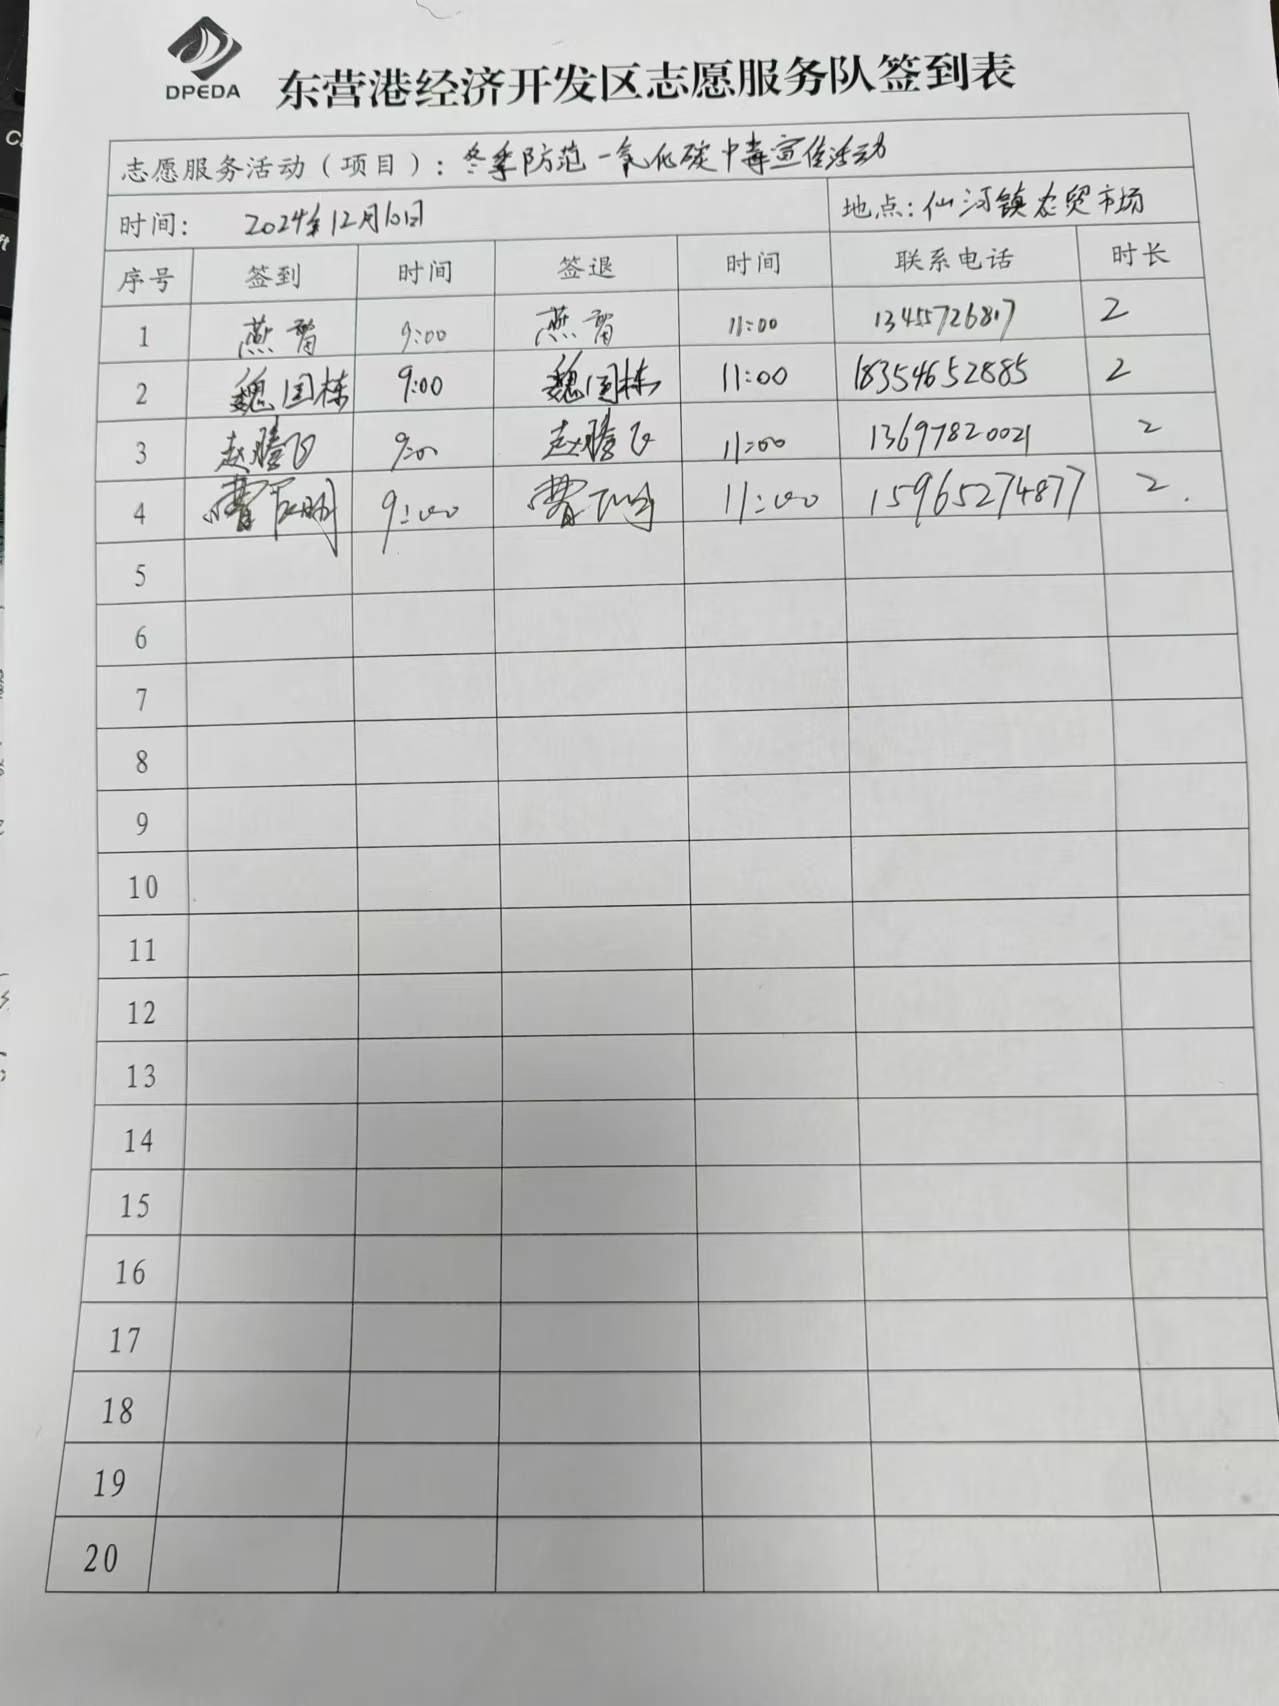 DPEDA
东营港经济开发区志愿服务队签到表
志愿服务活动（项目）：冬季防范一氧化碳中毒宣传活动
时间： 2024年12月10日 地点：仙河镇农贸市场
序号 签到 时间 签退 时间 联系电话 时长
1 燕 9:00 燕 11:00 13455726817 2
2 魏国栋 9:00 魏国栋 11:00 18354652885 2
3 赵腾飞 9:00 赵腾飞 11:00 13697820021 2
4 9:00 11:00 15965274877 2
5
6
7
8
9
10
11
12
13
14
15
16
17
18
19
20